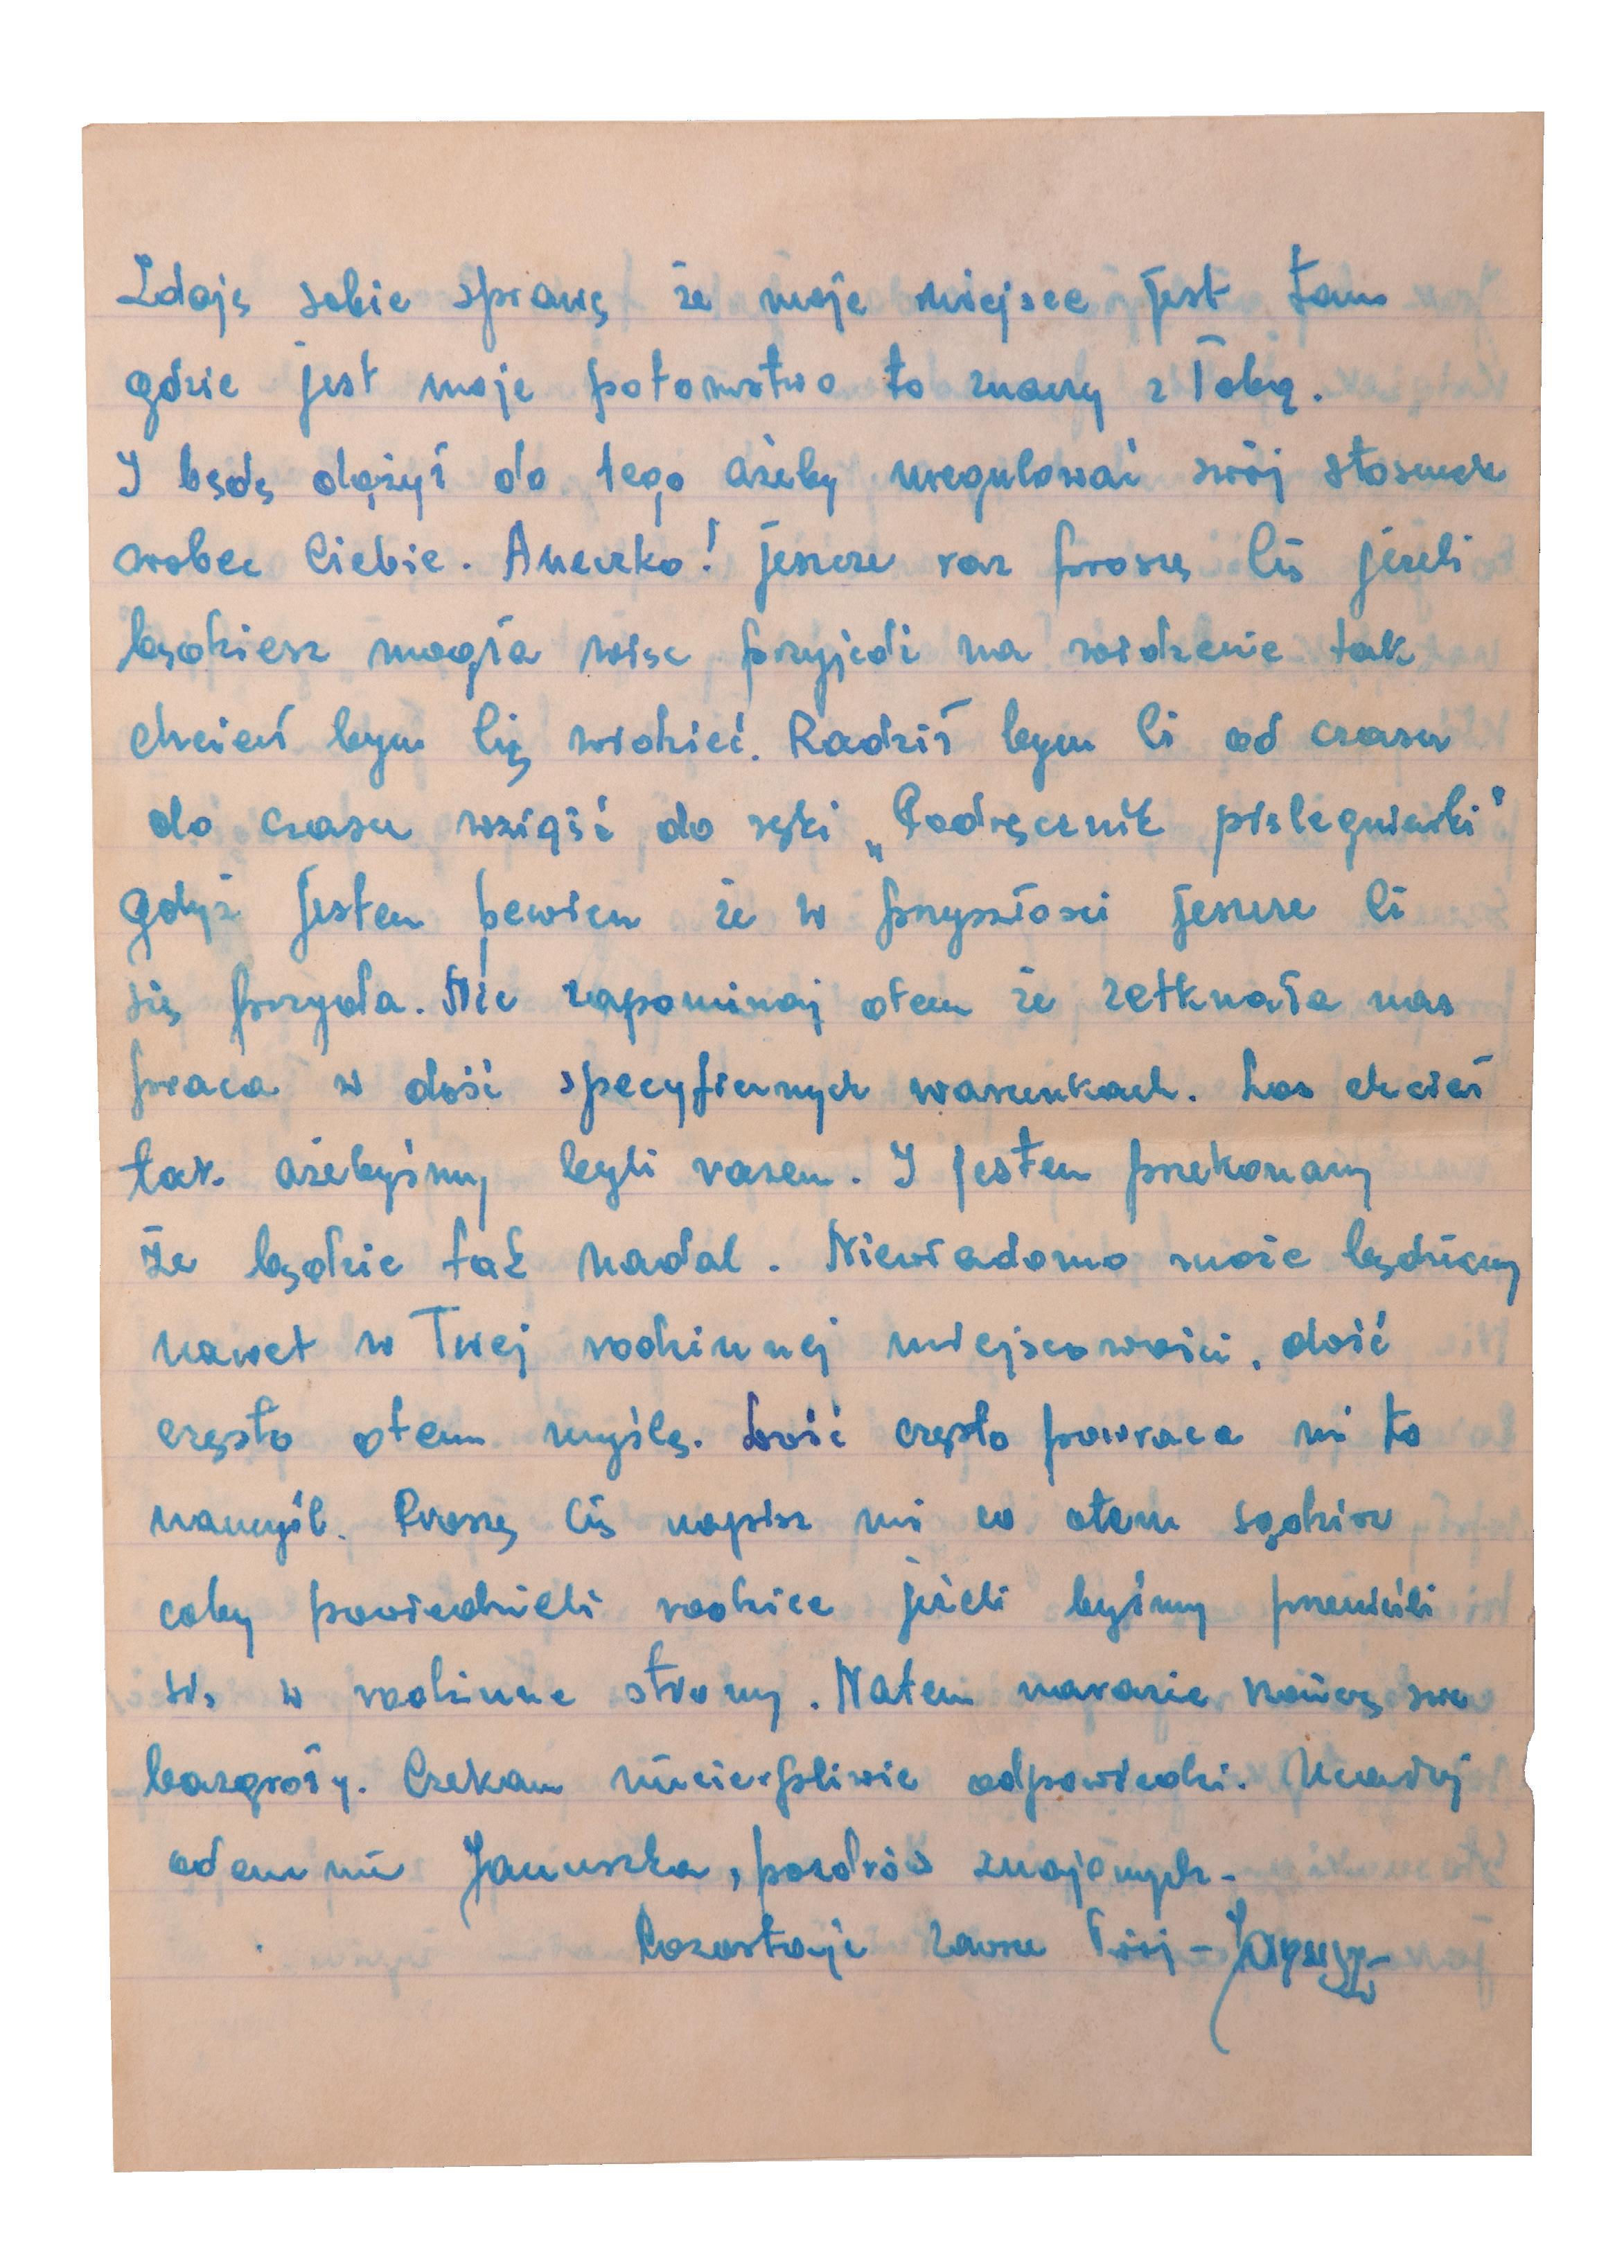 Zdaję sobie sprawę że moje miejsce jest tam
gdzie jest moje potomstwo to znaczy z Tobą.
I będę dążył do tego ażeby uregulować swój stosunek
wobec Ciebie. Aneczko! jeszcze raz proszę Cię jeżeli
będziesz mogła więc przyjedź na widzenie tak
chciał bym Cię widzieć. Radził bym Ci od czasu
do czasu wziąść do ręki „Podręcznik pielęgniarki"
gdyż jestem pewien że w przyszłości jeszcze Ci
się przyda. Nie zapominaj otem że zetknała nas
praca w dość specyficznych warunkach. Los chciał
tak ażebyśmy byli razem. I jestem przekonany
że będzie tak nadal. Niewiadomo może będziemy
nawet w Twej rodzinnej miejscowości, dość
często otem myślę. Dość często powraca mi to
namyśl. Proszę Cię napisz mi co otem sądzisz
coby powiedzieli rodzice jeżeli byśmy przenieśli
się w rodzinne strony. Natem narazie kończę swe
bazgroły. Czekam niecierpliwie odpowiedzi. Ucałuj
odemnie Januszka, pozdrów znajomych.
Pozostaję zawsze Twój - Janusz